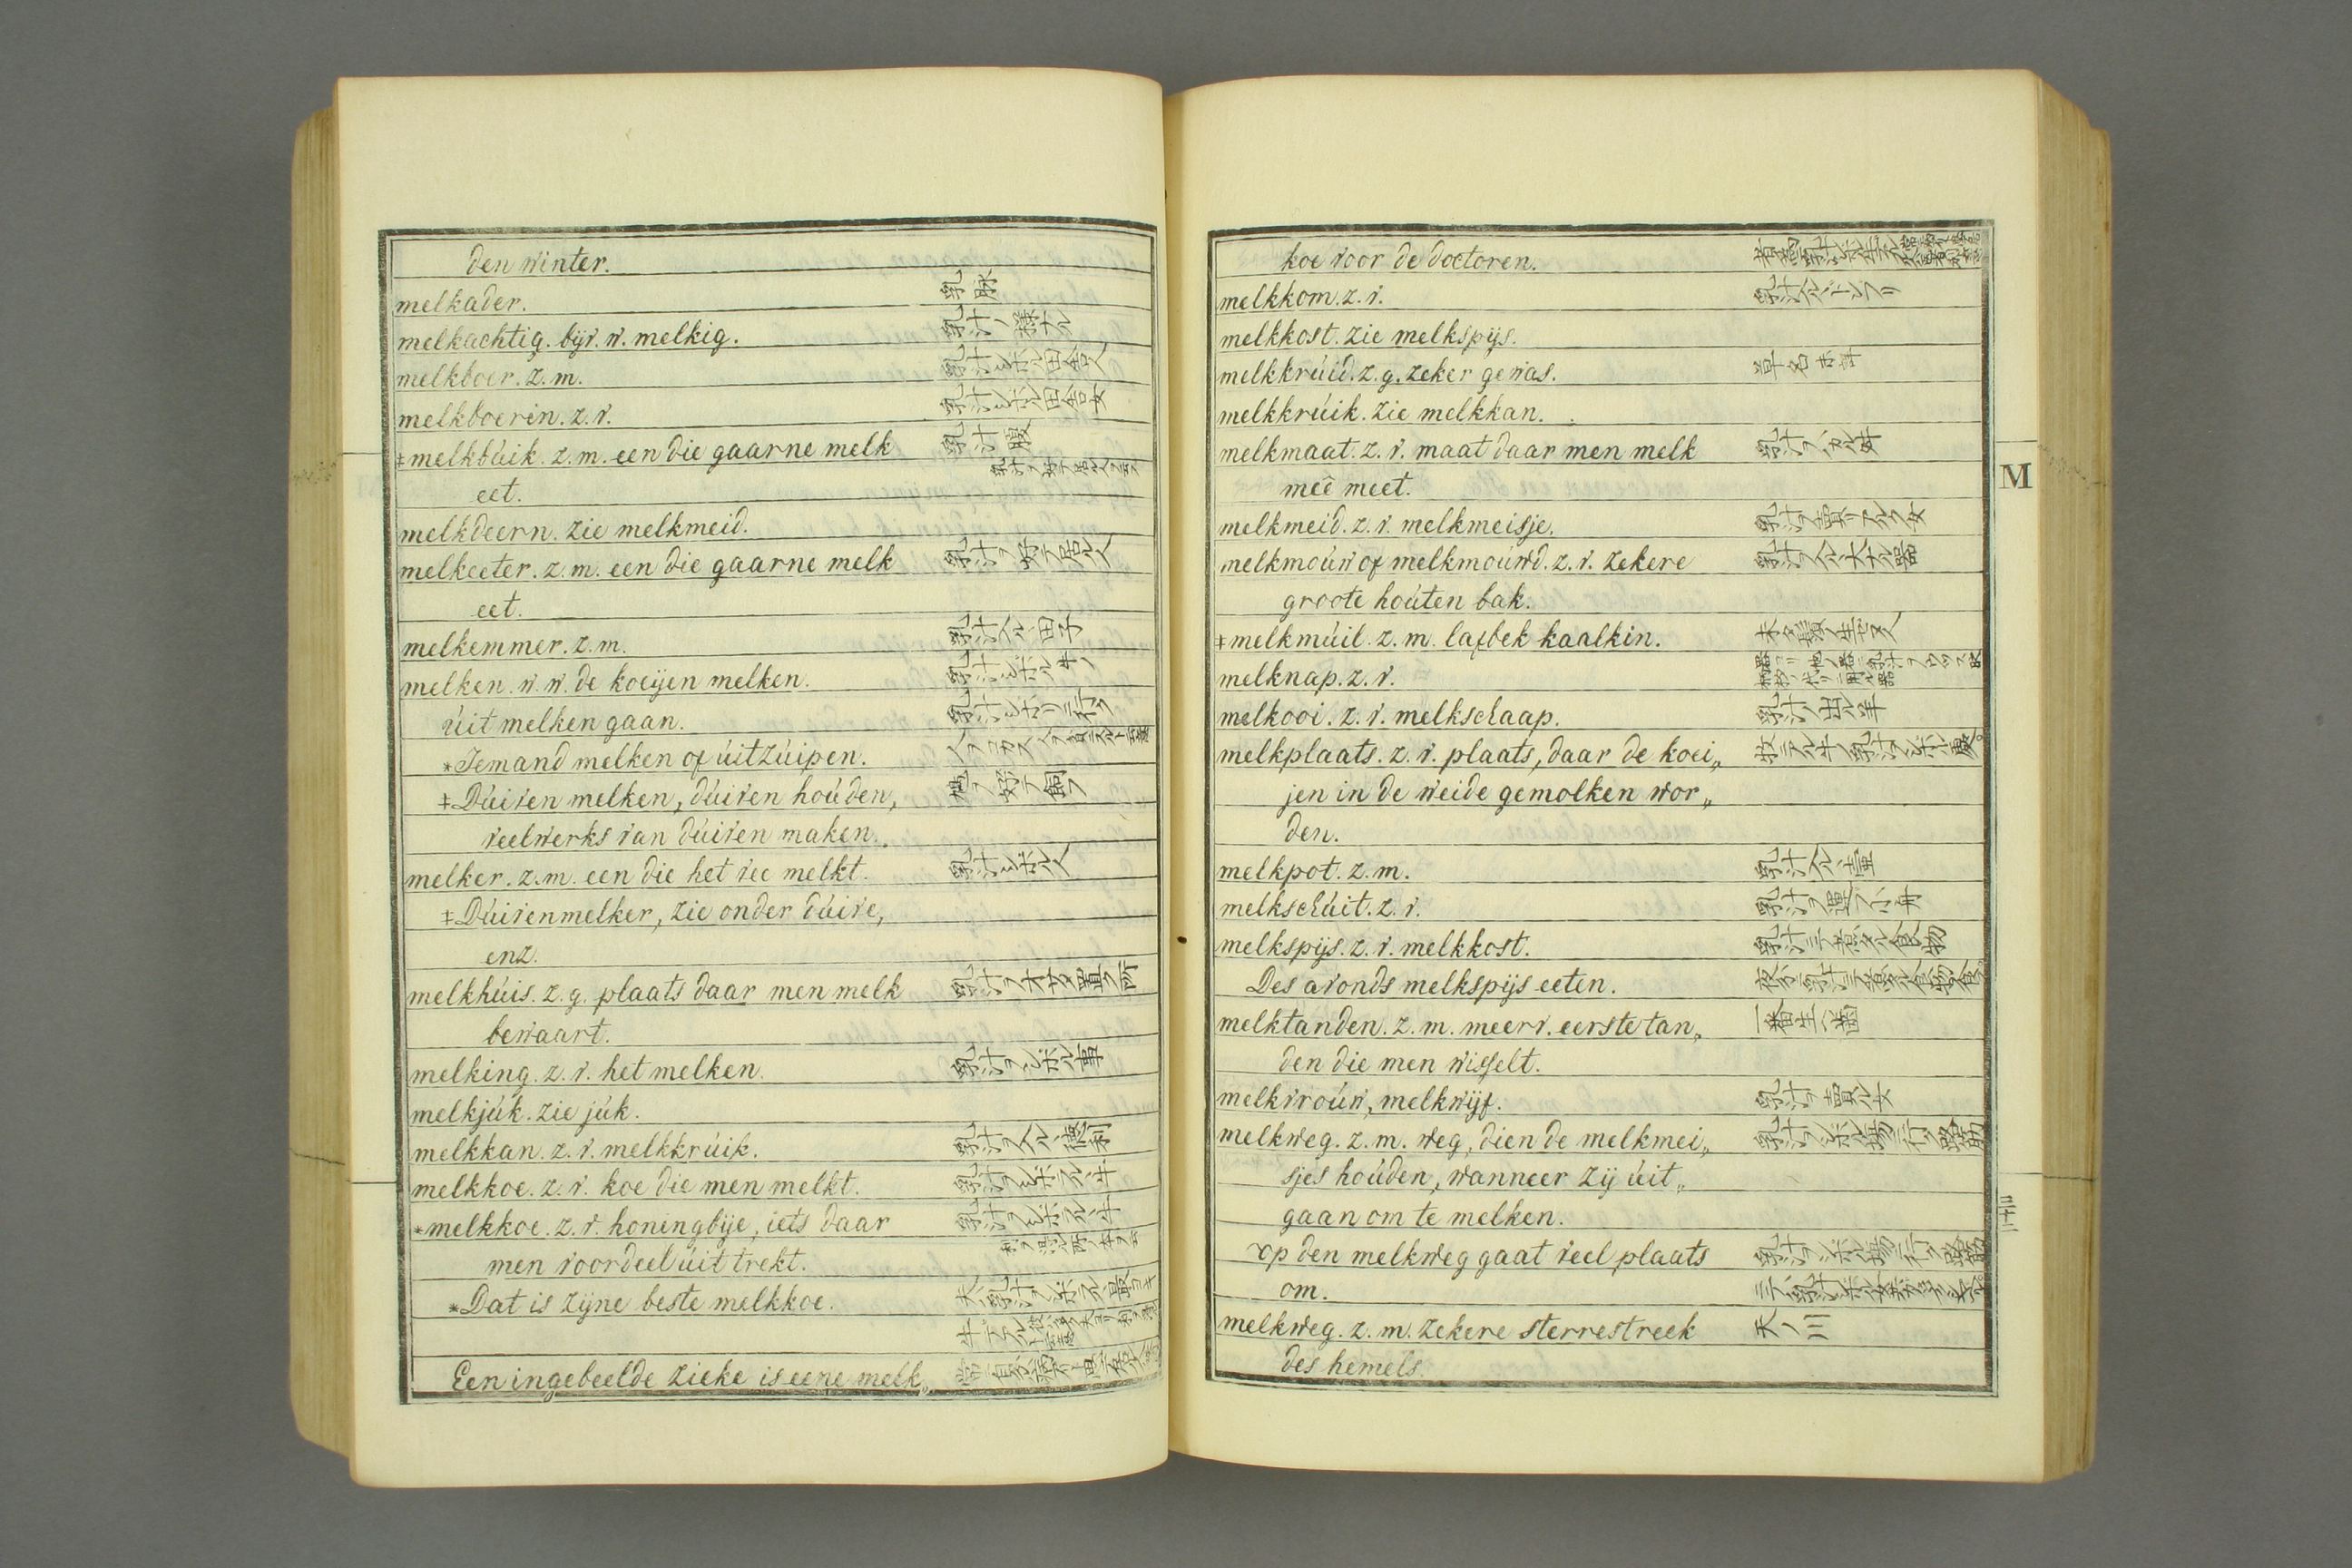 den winter.
melkader. 乳脉
melkachtig. bijv. w. melkig. 乳汁ノ様ナル
melkboer. z. m. 乳汁ヲシボル田舎人
melkboerin. z. v. 乳汁ヲシボル田舎女
‡melkbúik. z. m. een die gaarne melk 乳汁腹
eet. 乳汁ヲ好テ居ル人ヲ云フ
melkdeern. zie melkmeid.
melkeeter. z. m. een die gaarne melk 乳汁ヲ好テ居ル人
eet.
melkemmer. z. m. 乳汁ヲ入ル田子
melken. w. w. de koeijen melken. 乳汁ヲシボル牛ノ
úit melken gaan. 乳汁ヲシボリニ行ク
*Iemand melken of úitzúipen.
‡Dúiven melken, dúiven hoúden, 鳩ヲ好テ飼フ
veelwerks van dúiven maken.
melker. z. m. een die het vee melkt. 乳汁ヲシボル人
‡Dúivenmelker, zie onder dúive,
enz.
melkhúis. z. g. plaats daar men melk 乳汁ヲオサメ置ク所
bewaart.
melking. z. v. het melken. 乳汁ヲシボル事
melkjúk. zie júk.
melkkan. z. v. melkkrúik. 乳汁ヲ入ル徳利
melkkoe. z. v. koe die men melkt. 乳汁ヲシボラルヽ牛
*melkkoe. z. v. honingbije, iets daar 乳汁ヲシボラルヽ牛
men voordeel úit trekt.
*Dat is zijne beste melkkoe.
Een ingebeelde zieke is eene melk„
koe voor de doctoren.
melkkom. z. v. 乳汁入ルドンブリ
melkkost. zie melkspijs.
melkkrúid. z. g. zeker gewas. 草名未詳
melkkrúik. zie melkkan.
melkmaat. z. v. maat daar men melk 乳汁ヲハカル舛
meê meet.
melkmeid. z. v. melkmeisje. 乳汁ヲ賣リアルク女
melkmoúw of melkmoúwd. z. v. zekere 乳汁ヲ入ル大ナル器
groote hoúten bak.
‡melkmúil. z. m. lafbek kaalkin. 未タ鬚ノ生セヌ人
melknap. z. v.
melkooi. z. v. melkschaap. 乳汁ノ出ル羊
melkplaats. z. v. plaats, daar de koei„ 牧ニテ牛ノ乳汁ヲシボル處。
jen in de weide gemolken wor„
den.
melkpot. z. m. 乳汁入ル壷
melkschúit. z. v. 乳汁ヲ運フ小舟
melkspijs. z. v. melkkost. 乳汁ニテ煮タル食物
Des avonds melkspijs eeten.
melktanden. z. m. meerv. eerste tan„ 一番生ヘ歯
den die men wisselt.
melkvroúw, melkwijf. 乳汁ヲ賣ル女
melkweg. z. m. weg, dien de melkmei„ 乳汁ヲシボル場ニ行ク路筋
sjes hoúden, wanneer zij úit„
gaan om te melken.
op den melkweg gaat veel plaats 乳汁ヲシボル場ニ行ク路筋
om.
melkweg. z. m. zekere sterrestreek 天ノ川
des hemels.
M